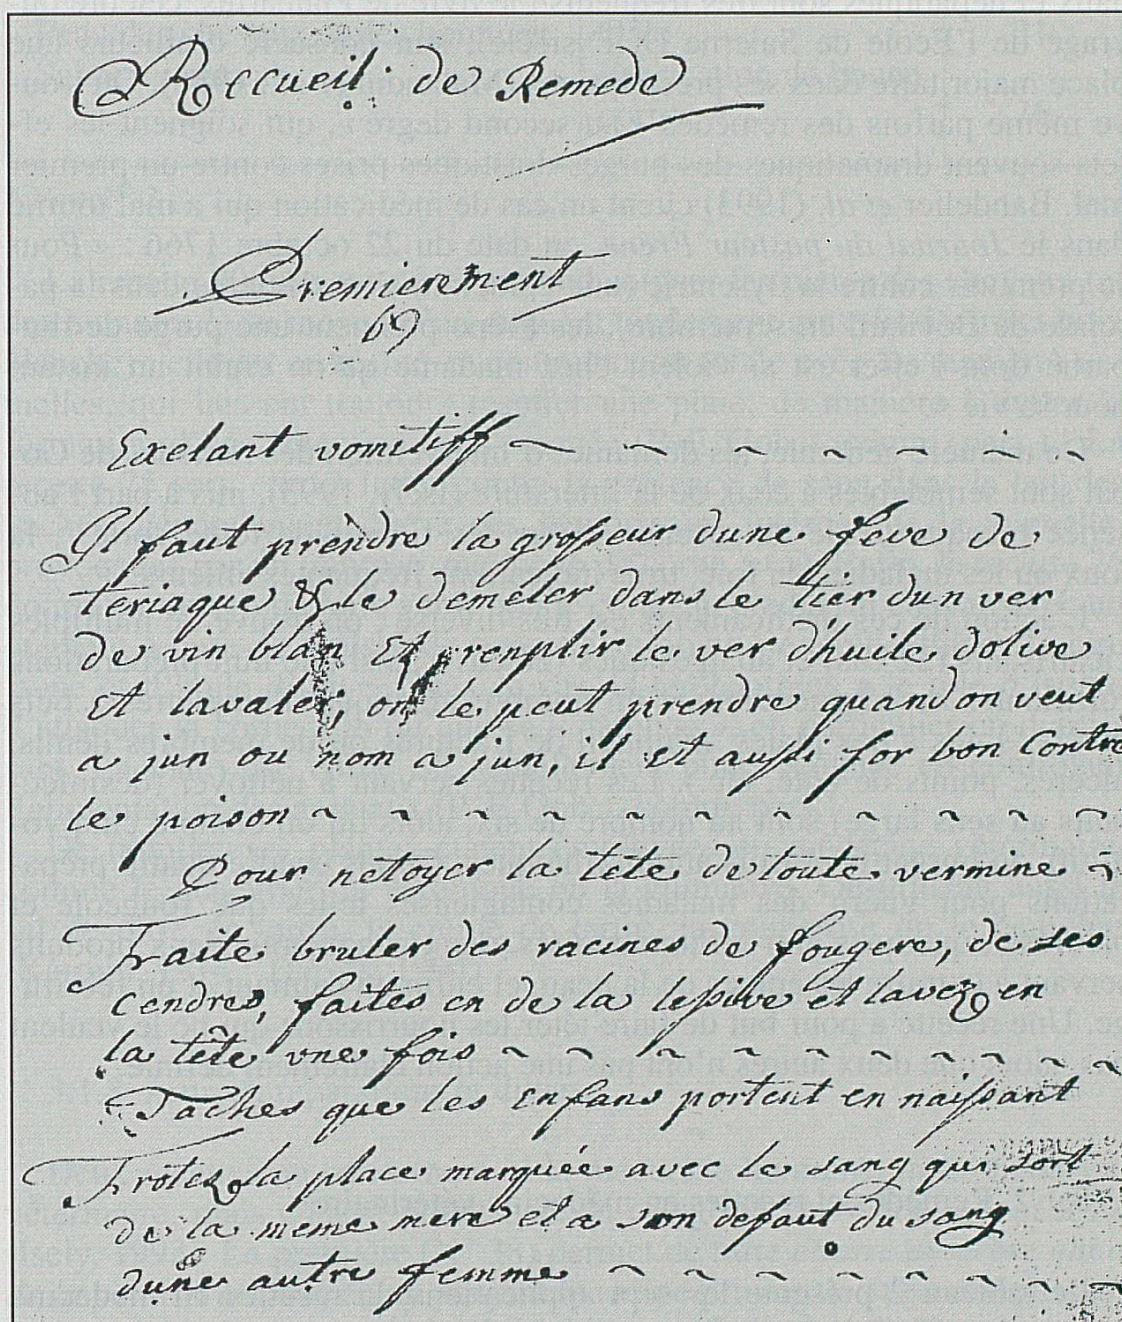 Recueil de Remede
Premierement
69
Exelant vomitiff ~ ~ ~ ~ ~ ~ ~ ~
Il faut prendre la grosseur dune feve de
teriaque & le demêler dans le tier dun ver
de vin blan Et renplir le ver d'huile dolive
et lavaler, on le peut prendre quand on veut
a jun ou nom a jun, il et aussi for bon contre
le poison ~ ~ ~ ~ ~ ~ ~ ~ ~ ~ ~ ~
Pour netoyer la tête de toute vermine ~
Fraite bruler des racines de fougere, de ses
cendres, faites en de la lessive et lavez en
la tête une fois ~ ~ ~ ~ ~ ~ ~ ~ ~ ~
Taches que les enfans portent en naissant
Frotez la place marquée avec le sang qui sort
de la meme mere et a son defaut du sang
dune autre femme ~ ~ ~ ~ ~ ~ ~ ~